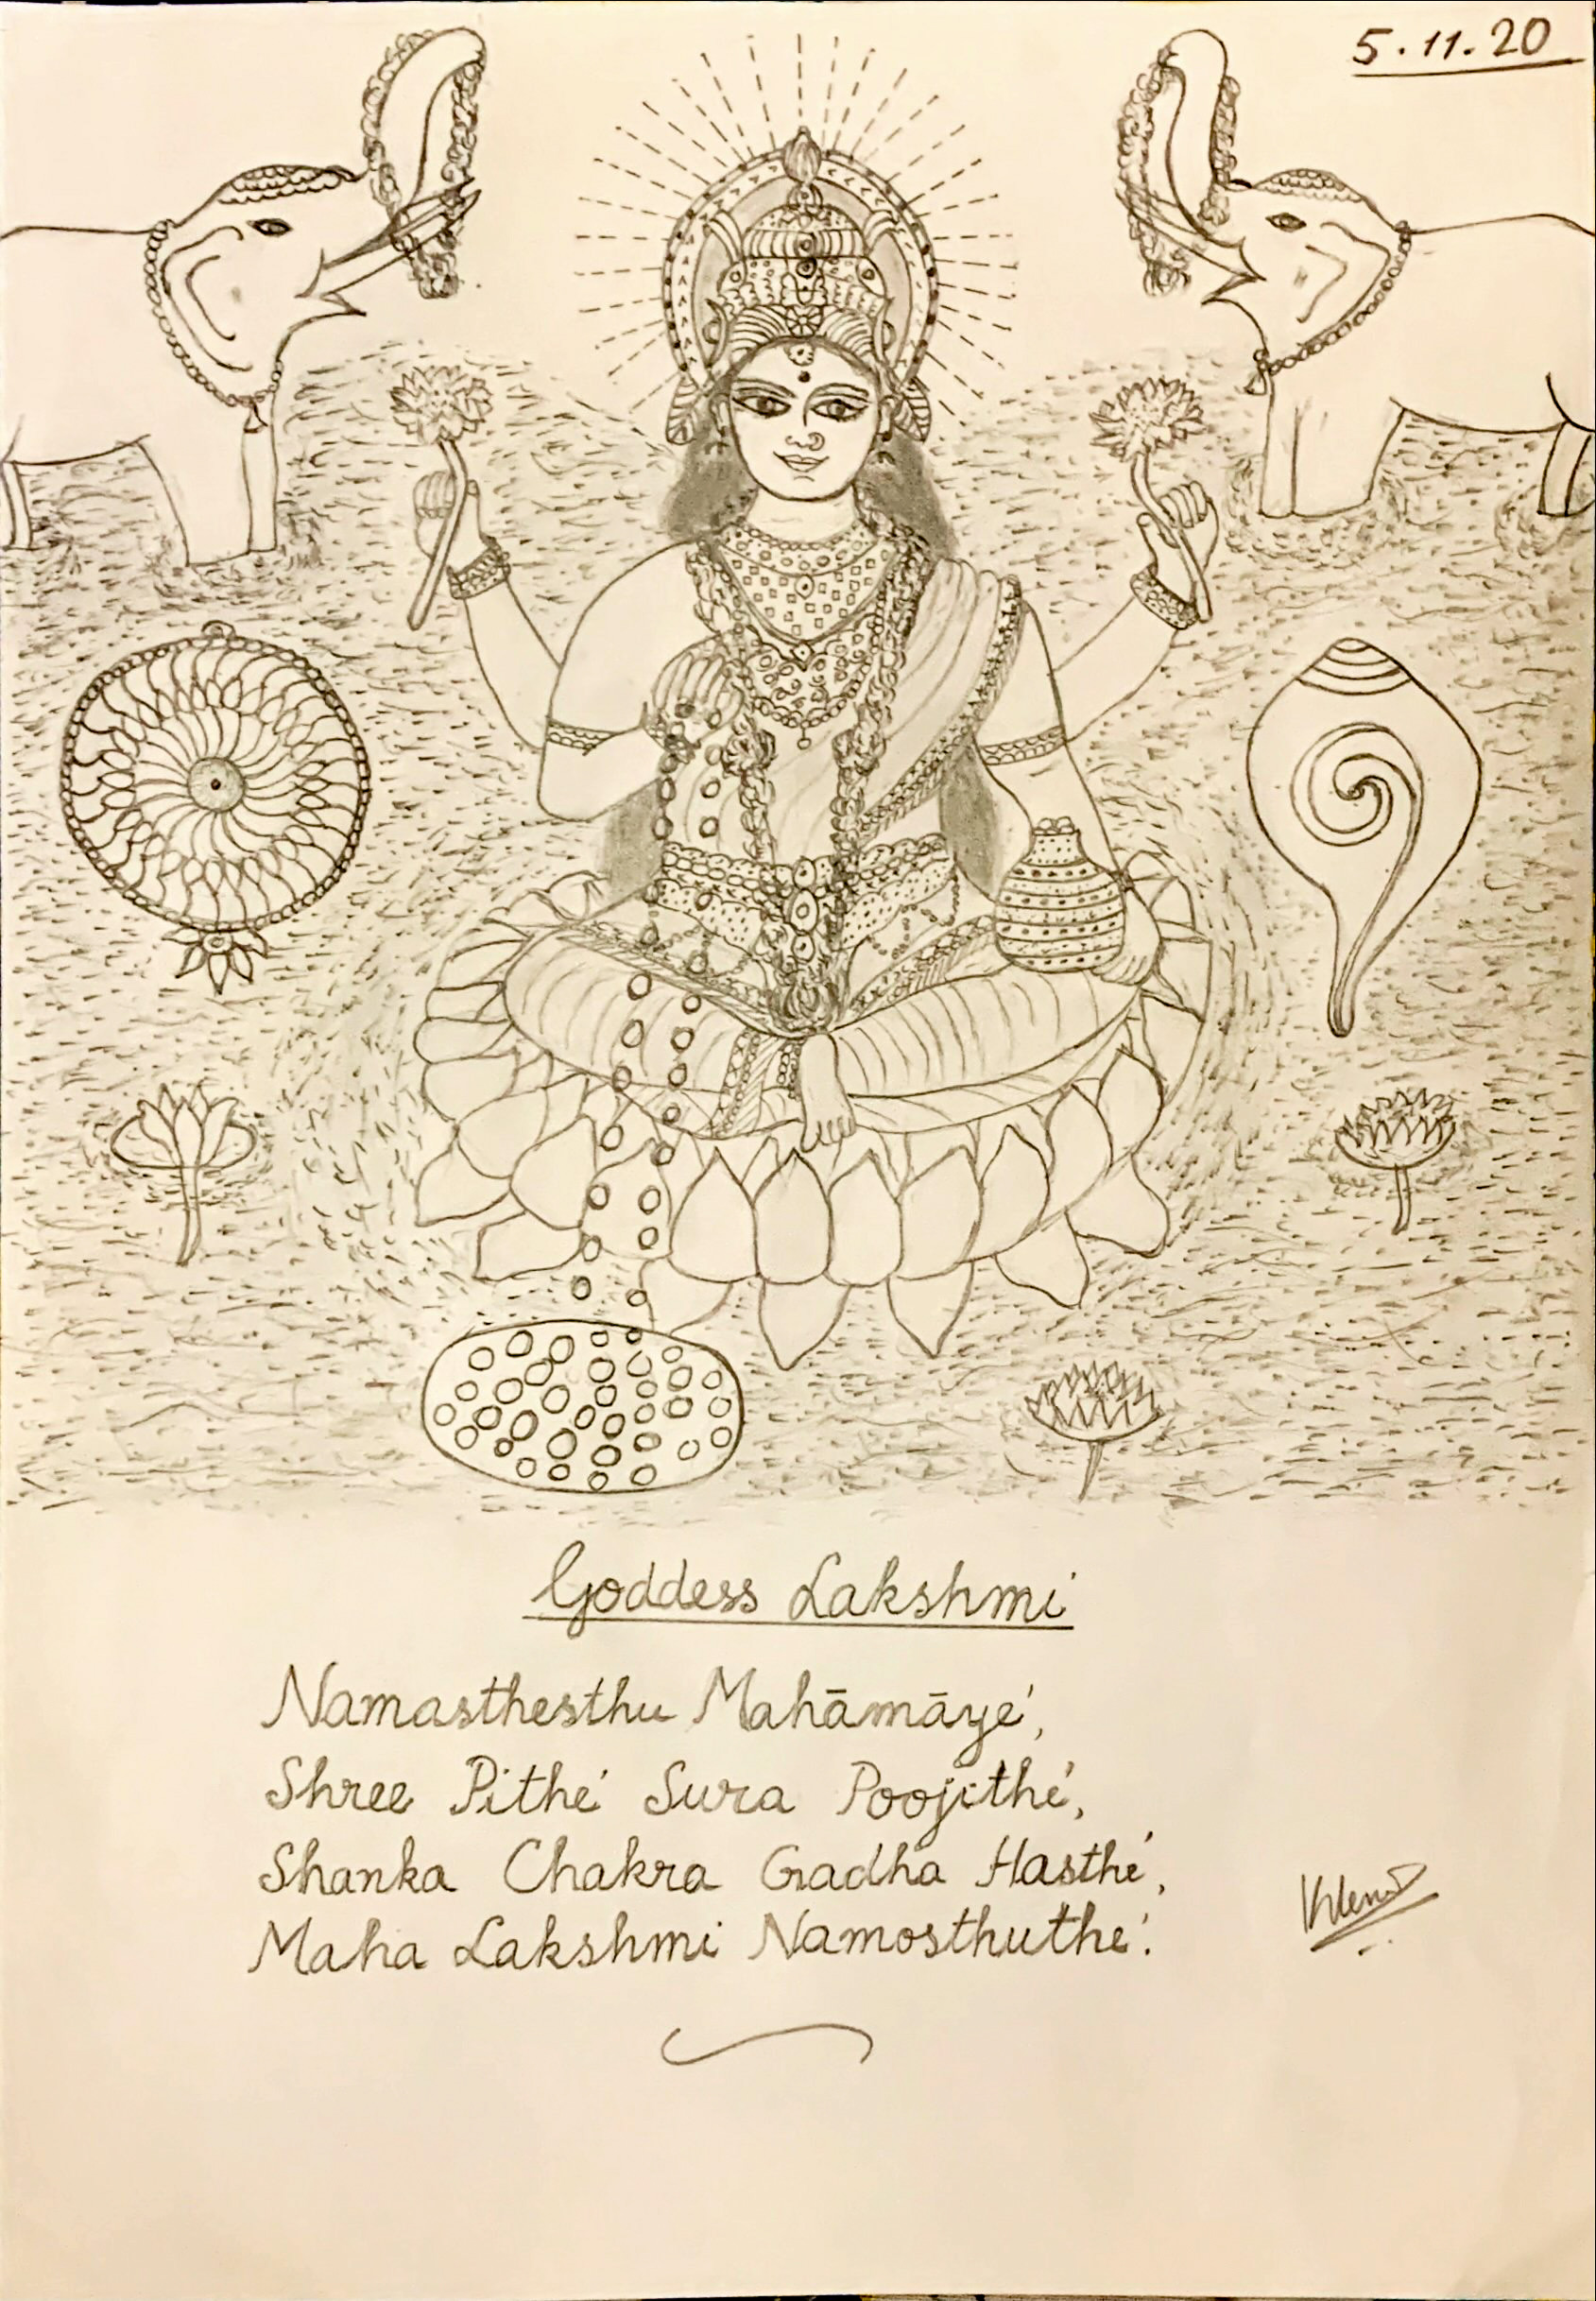 5.11.20
Goddess Lakshmi
Namasthesthu Mahāmāyé,
Shree Pithé Sura Poojithé,
Shanka Chakra Gadha Hasthé,
Maha Lakshmi Namosthuthé!